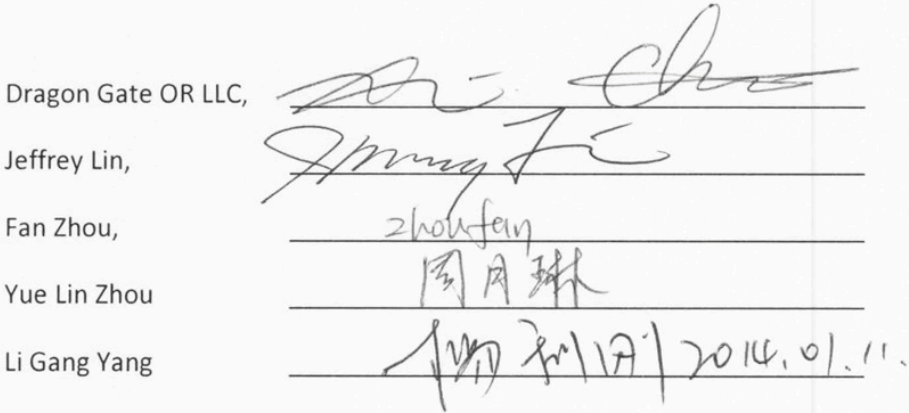 Dragon Gate OR LLC,
Jeffrey Lin,
Fan Zhou, zhoufan
Yue Lin Zhou 周月琳
Li Gang Yang 杨利刚 2014.01.11.